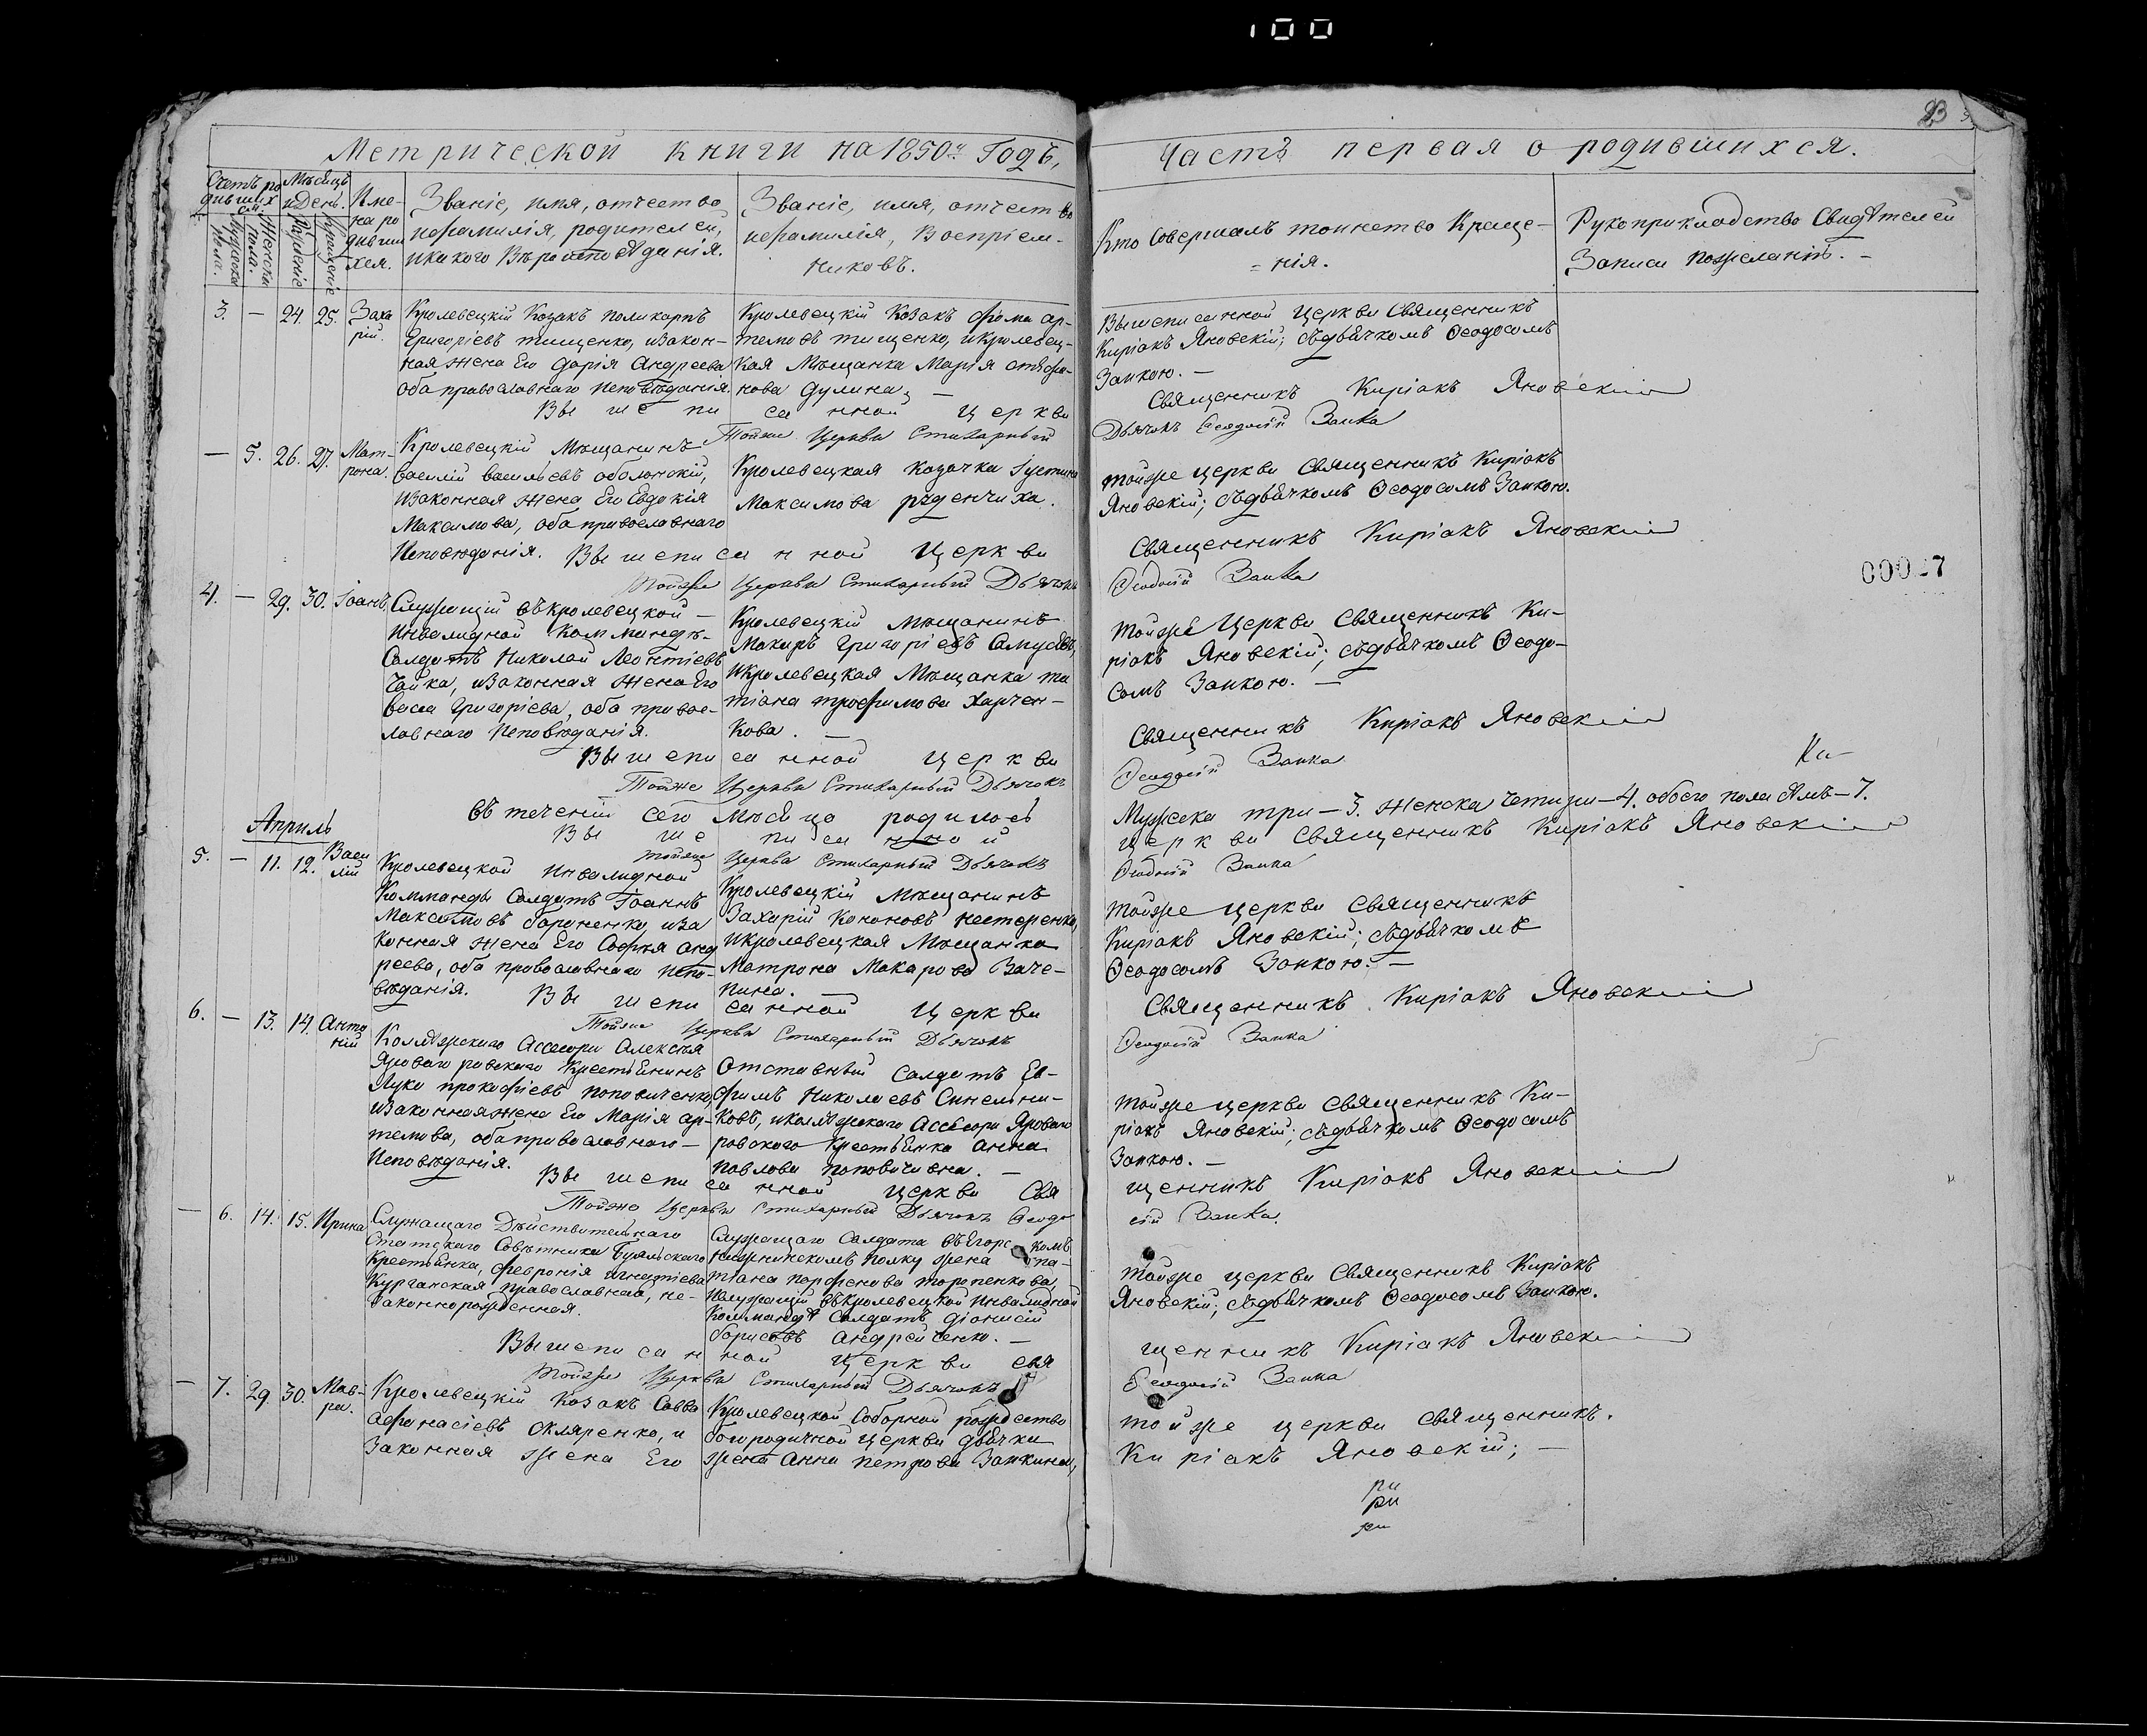 100
23
Метрической книги на 1850й Годъ,
Часть первая о родившихся.
Счетъ родившихся.
Мужеска пола.
Женска пола.
Мѣсяцъ и День.
Рожденіе
Крещеніе
Имена родившихся.
Званіе, имя, отчество
ифамилія, родителей,
икакого Вѣроисповѣданія.
Званіе, имя, отчество
ифамилія, Воспріем-
никовъ.
Кто Совершалъ таинство Креще-
=нія.
Рукоприкладство Свидѣтелей
Записи пожеланію. -
3. — 24. 25. Заха
рій.
Кролевецкій Козакъ поликарпъ
Григоріевъ тищенко, изакон-
ная жена Его Дарія Андреева
оба православнаго исповѣданія.
Кролевецкій Козакъ фома ар-
темовъ тищенко, икролевец-
кая Мѣщанка Марія стефа-
нова Дулина, —
Вышеписанной Церкви Священникъ
Киріакъ Яновскій; съдьячкомъ Ѳеодосомъ
Заикою. —
Вышеписанной церкви
Священникъ Киріакъ Яновскій
Тойже Церкви Стихарный
Дьячокъ Ѳеодосій Заика
— 5. 26. 27. Мат-
рона.
Кролевецкій Мѣщанинъ
василій васильевъ оболонскій,
изаконная жена Его Евдокія
Максимова, оба православнаго
исповѣданія.
Кролевецкая Козачка Іустина
Максимова руденчиха.
тойже церкви Священникъ Киріакъ
Яновскій; съдьячкомъ Ѳеодосомъ Заикою.
Вышеписанной Церкви
Священникъ Киріакъ Яновскій
Тойже Церкви Стихарный Дьячокъ
Ѳеодосій Заика
00027
4. — 29. 30. Іоанъ
Служащій въкролевецкой —
инвалидной Коммандѣ-
Салдатъ Николай Леонтіевъ
Чайка, изаконная жена Его
васса Григорієва, оба правос-
лавнаго исповѣданія.
Кролевецкій Мѣщанинъ
Макаръ Григоріевъ Самусевъ,
икролевецкая Мѣщанка та
тіана трофимова Харчен-
кова. —
тойже Церкви Священникъ Ки-
ріакъ Яновскій; съдьячкомъ Ѳеодо-
сомъ Заикою. —
Вышеписанной церкви
Священникъ Киріакъ Яновскій
Тойже Церкви Стихарный Дьячокъ
Ѳеодосій Заика
Ки-
въ теченіи сего мѣсяца родилось
Мужеска три — 3. женска четыри — 4. обоего пола — 7.
Вышеписанной
церкви Священникъ Киріакъ Яновскій
тойже Церкви Стихарный Дьячокъ
Ѳеодосій Заика
Априлъ
5. — 11. 12. Васи
лій
Кролевецкой инвалидной
Комманды Салдатъ Іоаннъ
Максимовъ бароненко, иза
конная жена Его Софья анд
реева, оба православнаго испо-
вѣданія.
Кролевецкій Мѣщанинъ
Захарій Кононовъ нестеренко,
икролевецкая Мѣщанка
Матрона Макарова Заче-
пина. —
тойже церкви Священникъ
Киріакъ Яновскій; съдьячкомъ
Ѳеодосомъ Заикою. —
Вышеписанной Церкви
Священникъ Киріакъ Яновскій
Тойже Церкви Стихарный Дьячокъ
Ѳеодосій Заика
6. — 13. 14. Анто
ній
Коллѣжскаго Ассесора Алексѣя
Яроваго ровского Крестьянинъ
Лука прокофіевъ поповиченко,
изаконная жена Его Марія ар-
темова, оба православнаго —
исповѣданія.
Отставный Салдатъ Ев-
фимъ Николаевъ Синельни-
ковъ, иколлѣжского Ассесора Яроваго
ровского Крестьянка анна
павлова поповичивна. —
тойже церкви Священникъ Ки-
ріакъ Яновскій; съдьячкомъ Ѳеодосомъ
Заикою. —
Вышеписанной церкви Свя
щенникъ Киріакъ Яновскій
Тойже Церкви Стихарный Дьячокъ Ѳеодо
сій Заика.
— 6. 14. 15. Ирина
Служащаго Дѣйствительнаго
Статскаго Совѣтника
Крестьянка, февронія игнатіева
Курганская православная, не-
законнорожденная.
Служащаго Салдата
полку жена та-
тіана парфенова торопенкова,
ислужащій въкролевецкой инвалидной
Коммандѣ Салдатъ діонисій
борисовъ андрейченко. —
тойже церкви Священникъ Киріакъ
Яновскій; съдьячкомъ Ѳеодосомъ Заикою.
Вышеписанной церкви свя
щенникъ Киріакъ Яновскій
тойже Церкви Стихарный Дьячокъ
Ѳеодосій Заика
— 7. 29. 30. Мав-
ра.
Кролевецкій Козакъ Савва
афанасіевъ скляренко, и
законная жена Его
Кролевецкой Соборной рождество
богородичной церкви дьячка
жена анна петрова Заикина,
тойже церкви священникъ.
Киріакъ Яновскій; —
ри
ри
ри